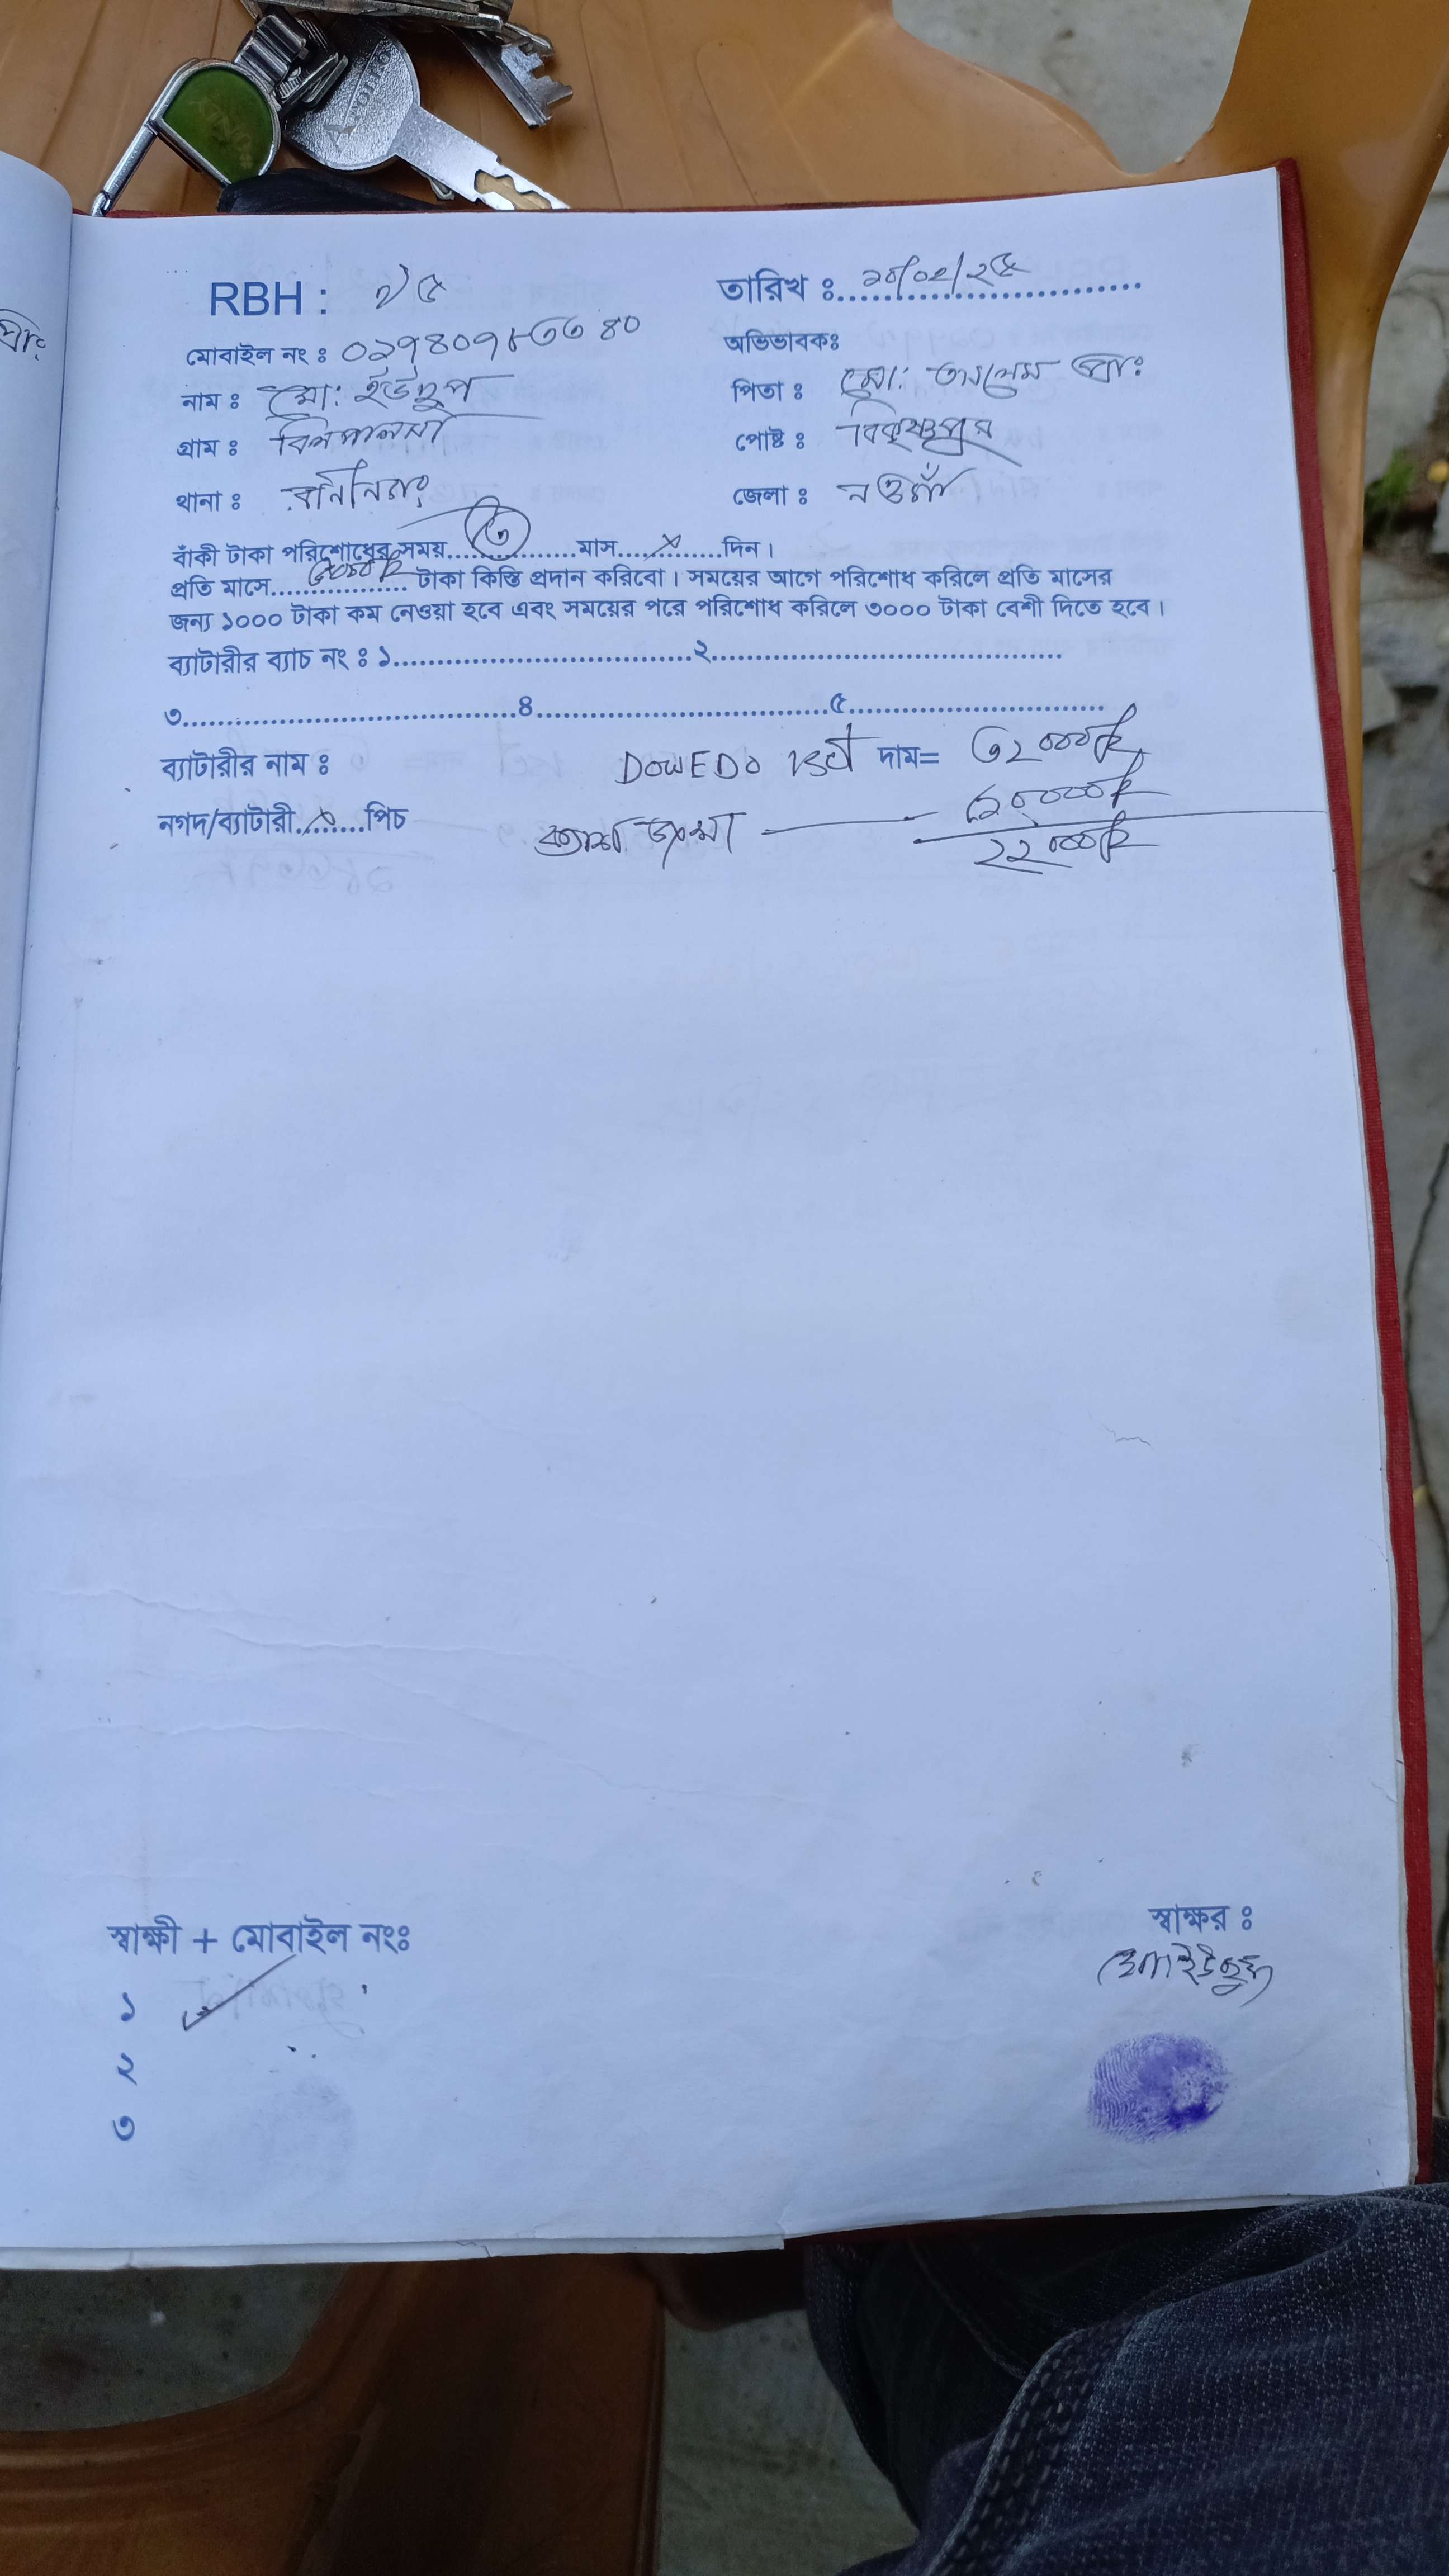 RBH : ১৫
তারিখ ঃ
মোবাইল নং ঃ
অভিভাবকঃ
নাম ঃ মো: ইউসুপ
পিতা ঃ মো: প্রাঃ
গ্রাম ঃ বিলপালসা
পোষ্ট ঃ বিষ্ণুপুর
থানা ঃ রানীনগর
জেলা ঃ নওগাঁ
বাঁকী টাকা পরিশোধের সময়.....৩.....মাস.....×.....দিন।
প্রতি মাসে............... টাকা কিস্তি প্রদান করিবো। সময়ের আগে পরিশোধ করিলে প্রতি মাসের
জন্য ১০০০ টাকা কম নেওয়া হবে এবং সময়ের পরে পরিশোধ করিলে ৩০০০ টাকা বেশী দিতে হবে।
ব্যাটারীর ব্যাচ নং ঃ ১...............২...............
৩...............৪...............৫...............
ব্যাটারীর নাম ঃ DOWEDO 1set দাম= ৩২০০০/=
নগদ/ব্যাটারী...×...পিচ জমা — ১০০০০/=
২২০০০/=
স্বাক্ষী + মোবাইল নংঃ
স্বাক্ষর ঃ
১
২
৩